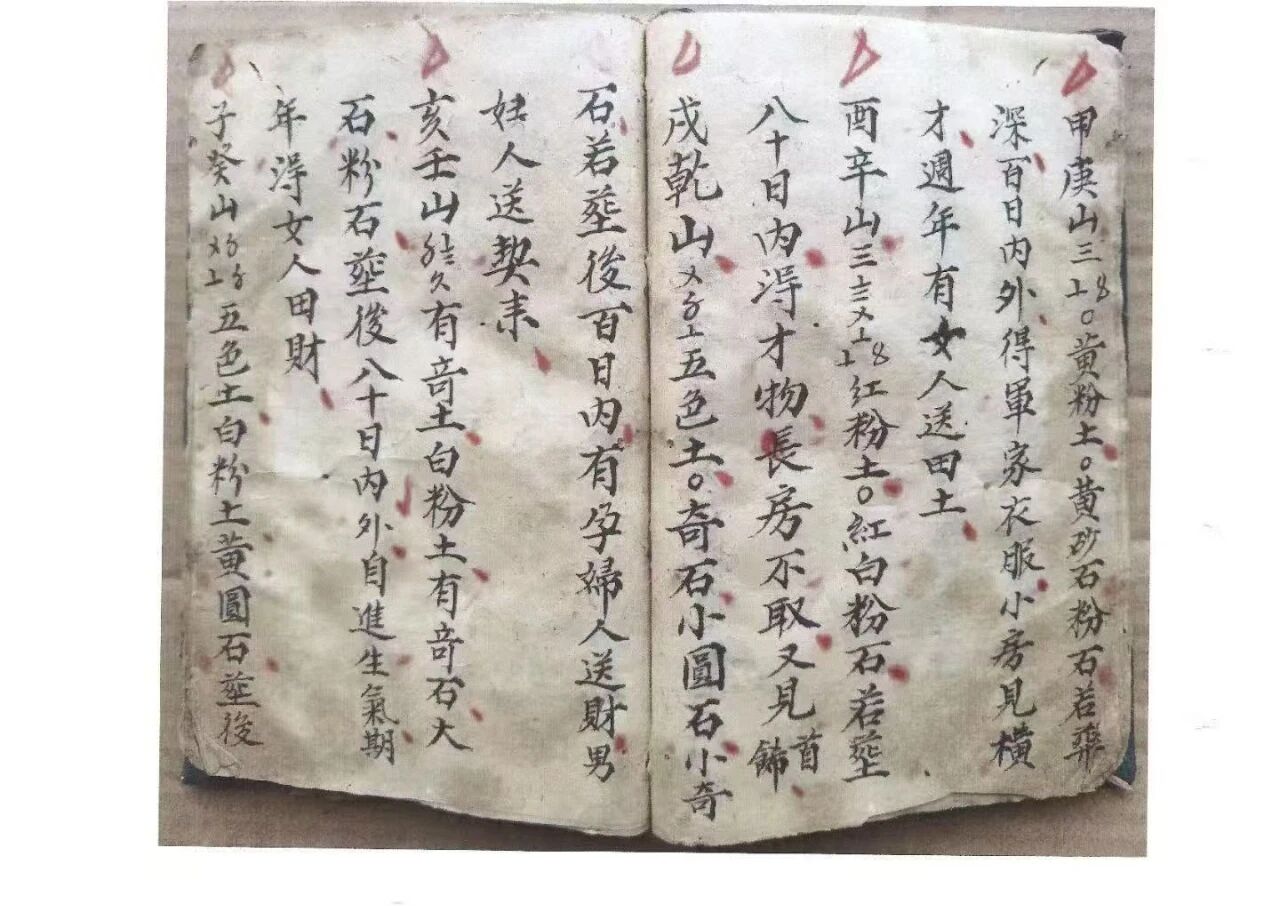 甲庚山三〦〨〇黃粉土〇黃砂石粉石若塟
深百日內外得軍家衣服小房見橫
才週年有女人送田土
酉辛山三〨紅粉土〇紅白粉石若塟
八十日內淂才物長房不取又見首飾
戌乾山五色土〇奇石小圓石小奇
石若塟後百日內有孕婦人送財男
妊人送契来
亥壬山有竒土白粉土有竒石大
石粉石塟後八十日內外自進生氣期
年淂女人田財
子癸山五色土白粉土黃圓石塟後